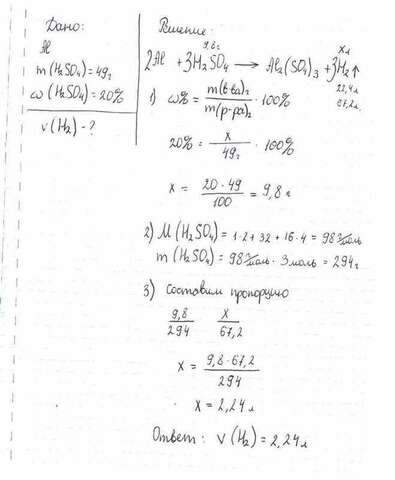 Дано:
Al
m(H₂SO₄)=49г
ω(H₂SO₄)=20%
v(H₂)-?
Решение:
9,8г xл
2Al + 3H₂SO₄ → Al₂(SO₄)₃ + 3H₂↑
22,4л
67,2л
1) ω% = m(в-ва)₂ / m(р-ра)₂ · 100%
20% = x / 49г · 100%
x = 20·49 / 100 = 9,8 г
2) M(H₂SO₄) = 1·2+32+16·4 = 98 г/моль
m(H₂SO₄) = 98 г/моль · 3 моль = 294г
3) Составим пропорцию
9,8 / 294 x / 67,2
x = 9,8·67,2 / 294
x = 2,24 л
Ответ: v(H₂)=2,24л